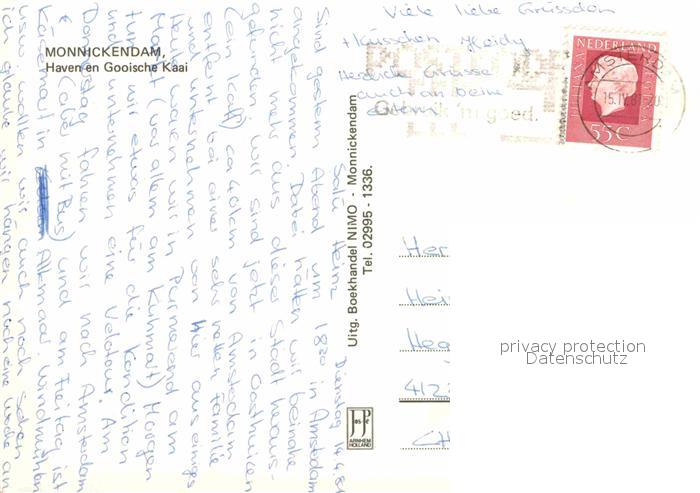 MONNICKENDAM,
Haven en Gooische Kaai
Viele liebe Grüssdon
+ Küsschen Heidy
Herzliche Grüsse
auch an deine
Eltern
NEDERLAND
55c
15.IV.81
'm goed.
Uitg. Boekhandel NIMO - Monnickendam
Tel. 02995 - 1336.
ARNHEM
HOLLAND
Her
Hei
Heg
412
CH
privacy protection
Datenschutz
Dienstag 14.4.81
Salü Heinz
Sind gestern Abend um 1830 in Amsterdam
angekommen. Dabei hätten wir beinahe
nicht mehr aus dieser Stadt heraus-
gefunden. Wir sind jetzt in Oosthuizen
(ein Kaff) ca 40km von Amsterdam
entfernt bei einer sehr netten Familie
und unternehmen von hier aus einiges
Heute waren wir in Purmerend am
Markt (vor allem am Käsmärt) Morgen
tun wir etwas für die Kondition
und unternehmen eine Velotour. Am
Donnerstag fahren wir nach Amsterdam
(mit Bus) und am Freitag ist
Käsemarkt in Alkmaar. Windmühlen
usw wollten wir auch noch sehen
ich glaube wir hängen noch eine Woche an